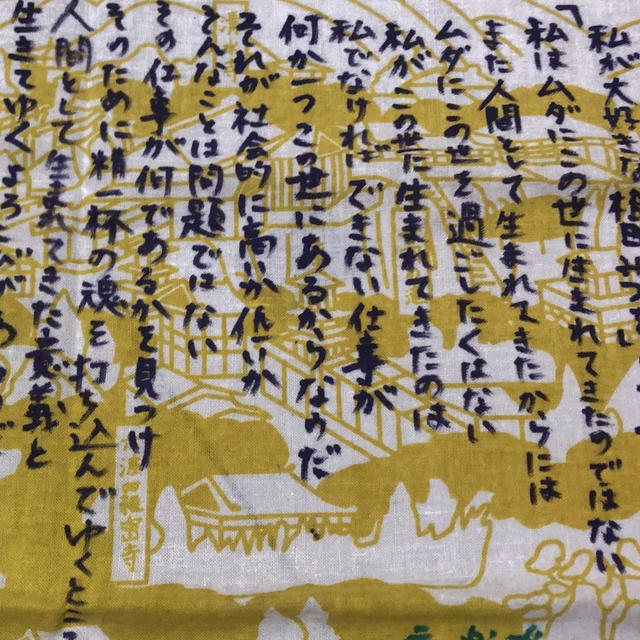 私が大好きな相田
「私はムダにこの世に生まれてきたのではない
また人間として生まれてきたからには
ムダにこの世を過ごしたくはない
私がこの世に生まれてきたのは
私でなければできない仕事が
何か一つこの世にあるからなのだ
それが社会的に高いか低いか
そんなことは問題ではない
その仕事が何であるかを見つけ
そのために精一杯の魂を打ち込んでゆくところに
人間として生まれてきた意義と
生きてゆくよろこびがある